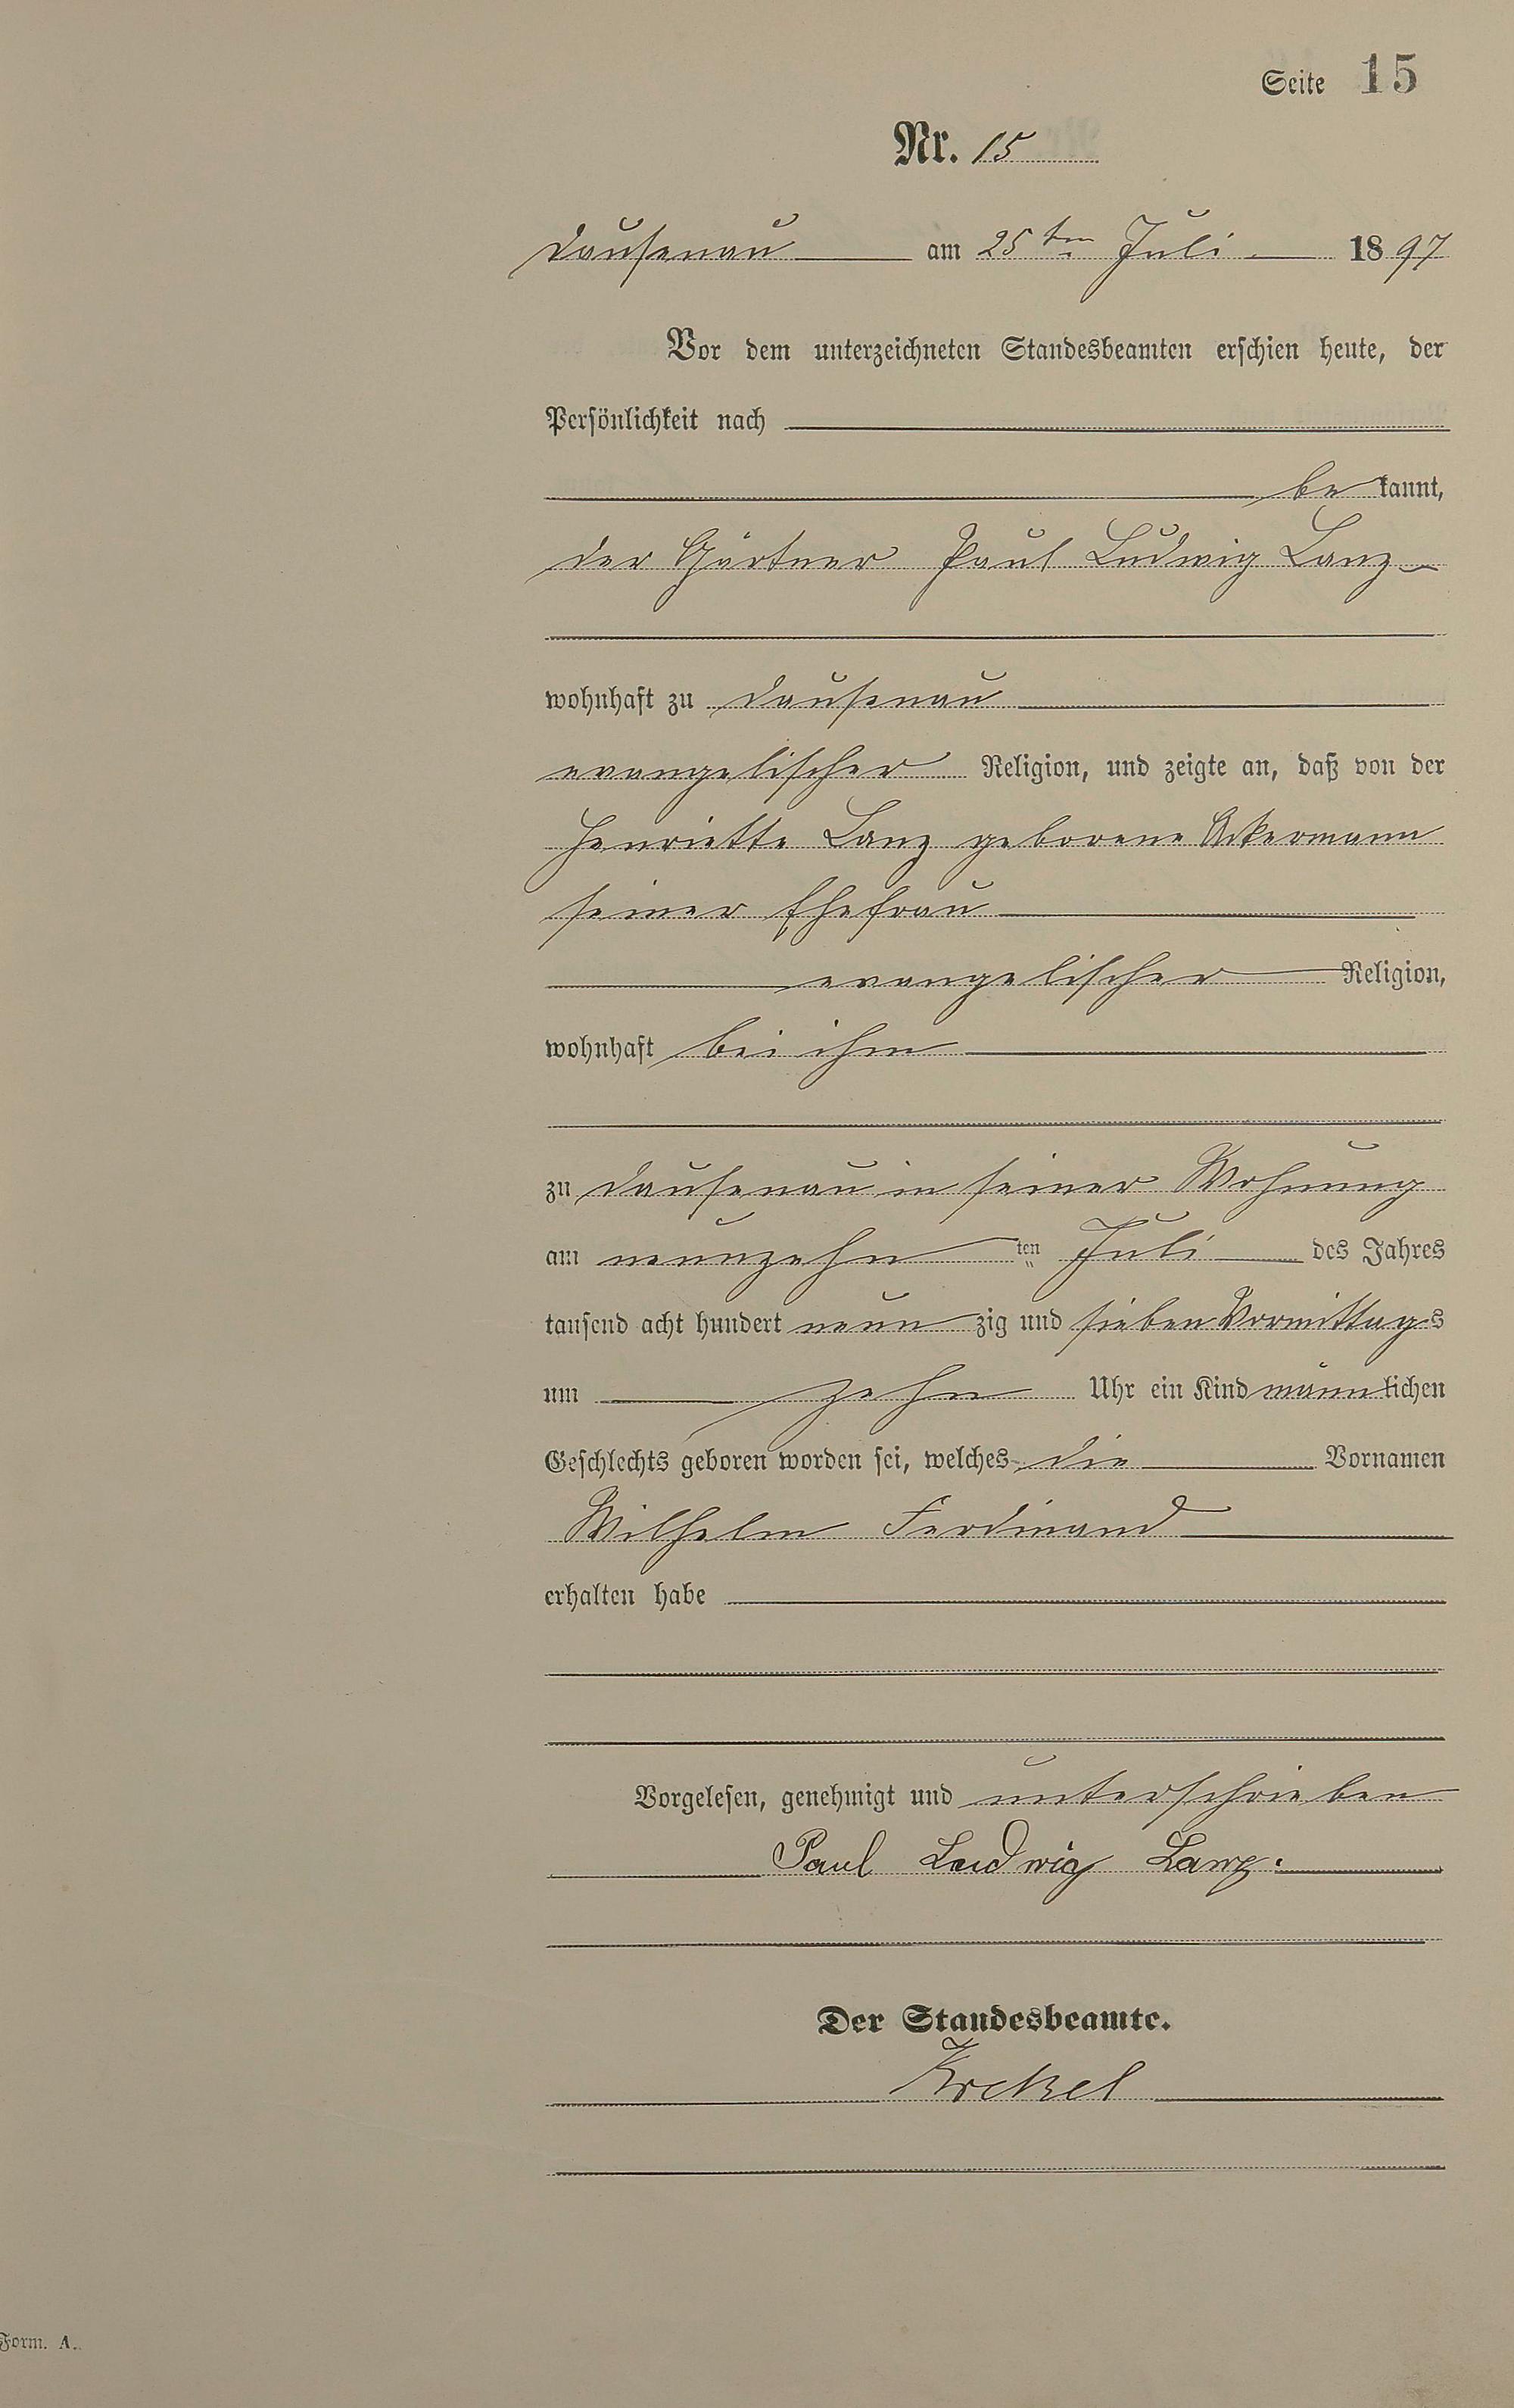 Seite 15
Nr. 15
Dausenau am 25ten Juli 1897
Vor dem unterzeichneten Standesbeamten erschien heute, der
Persönlichkeit nach
bekannt,
der Gärtner Paul Ludwig Lanz
wohnhaft zu Dausenau
evangelischer Religion, und zeigte an, daß von der
Henriette Lanz geborene Ackermann
seiner Ehefrau
evangelischer Religion,
wohnhaft bei ihm
zu Dausenau in seiner Wohnung
am neunzehn ten Juli des Jahres
tausend acht hundert neunzig und sieben Vormittags
um zehn Uhr ein Kind männlichen
Geschlechts geboren worden sei, welches die Vornamen
Wilhelm Ferdinand
erhalten habe
Vorgelesen, genehmigt und unterschrieben
Paul Ludwig Lanz.
Der Standesbeamte.
Krekel
Form. A.